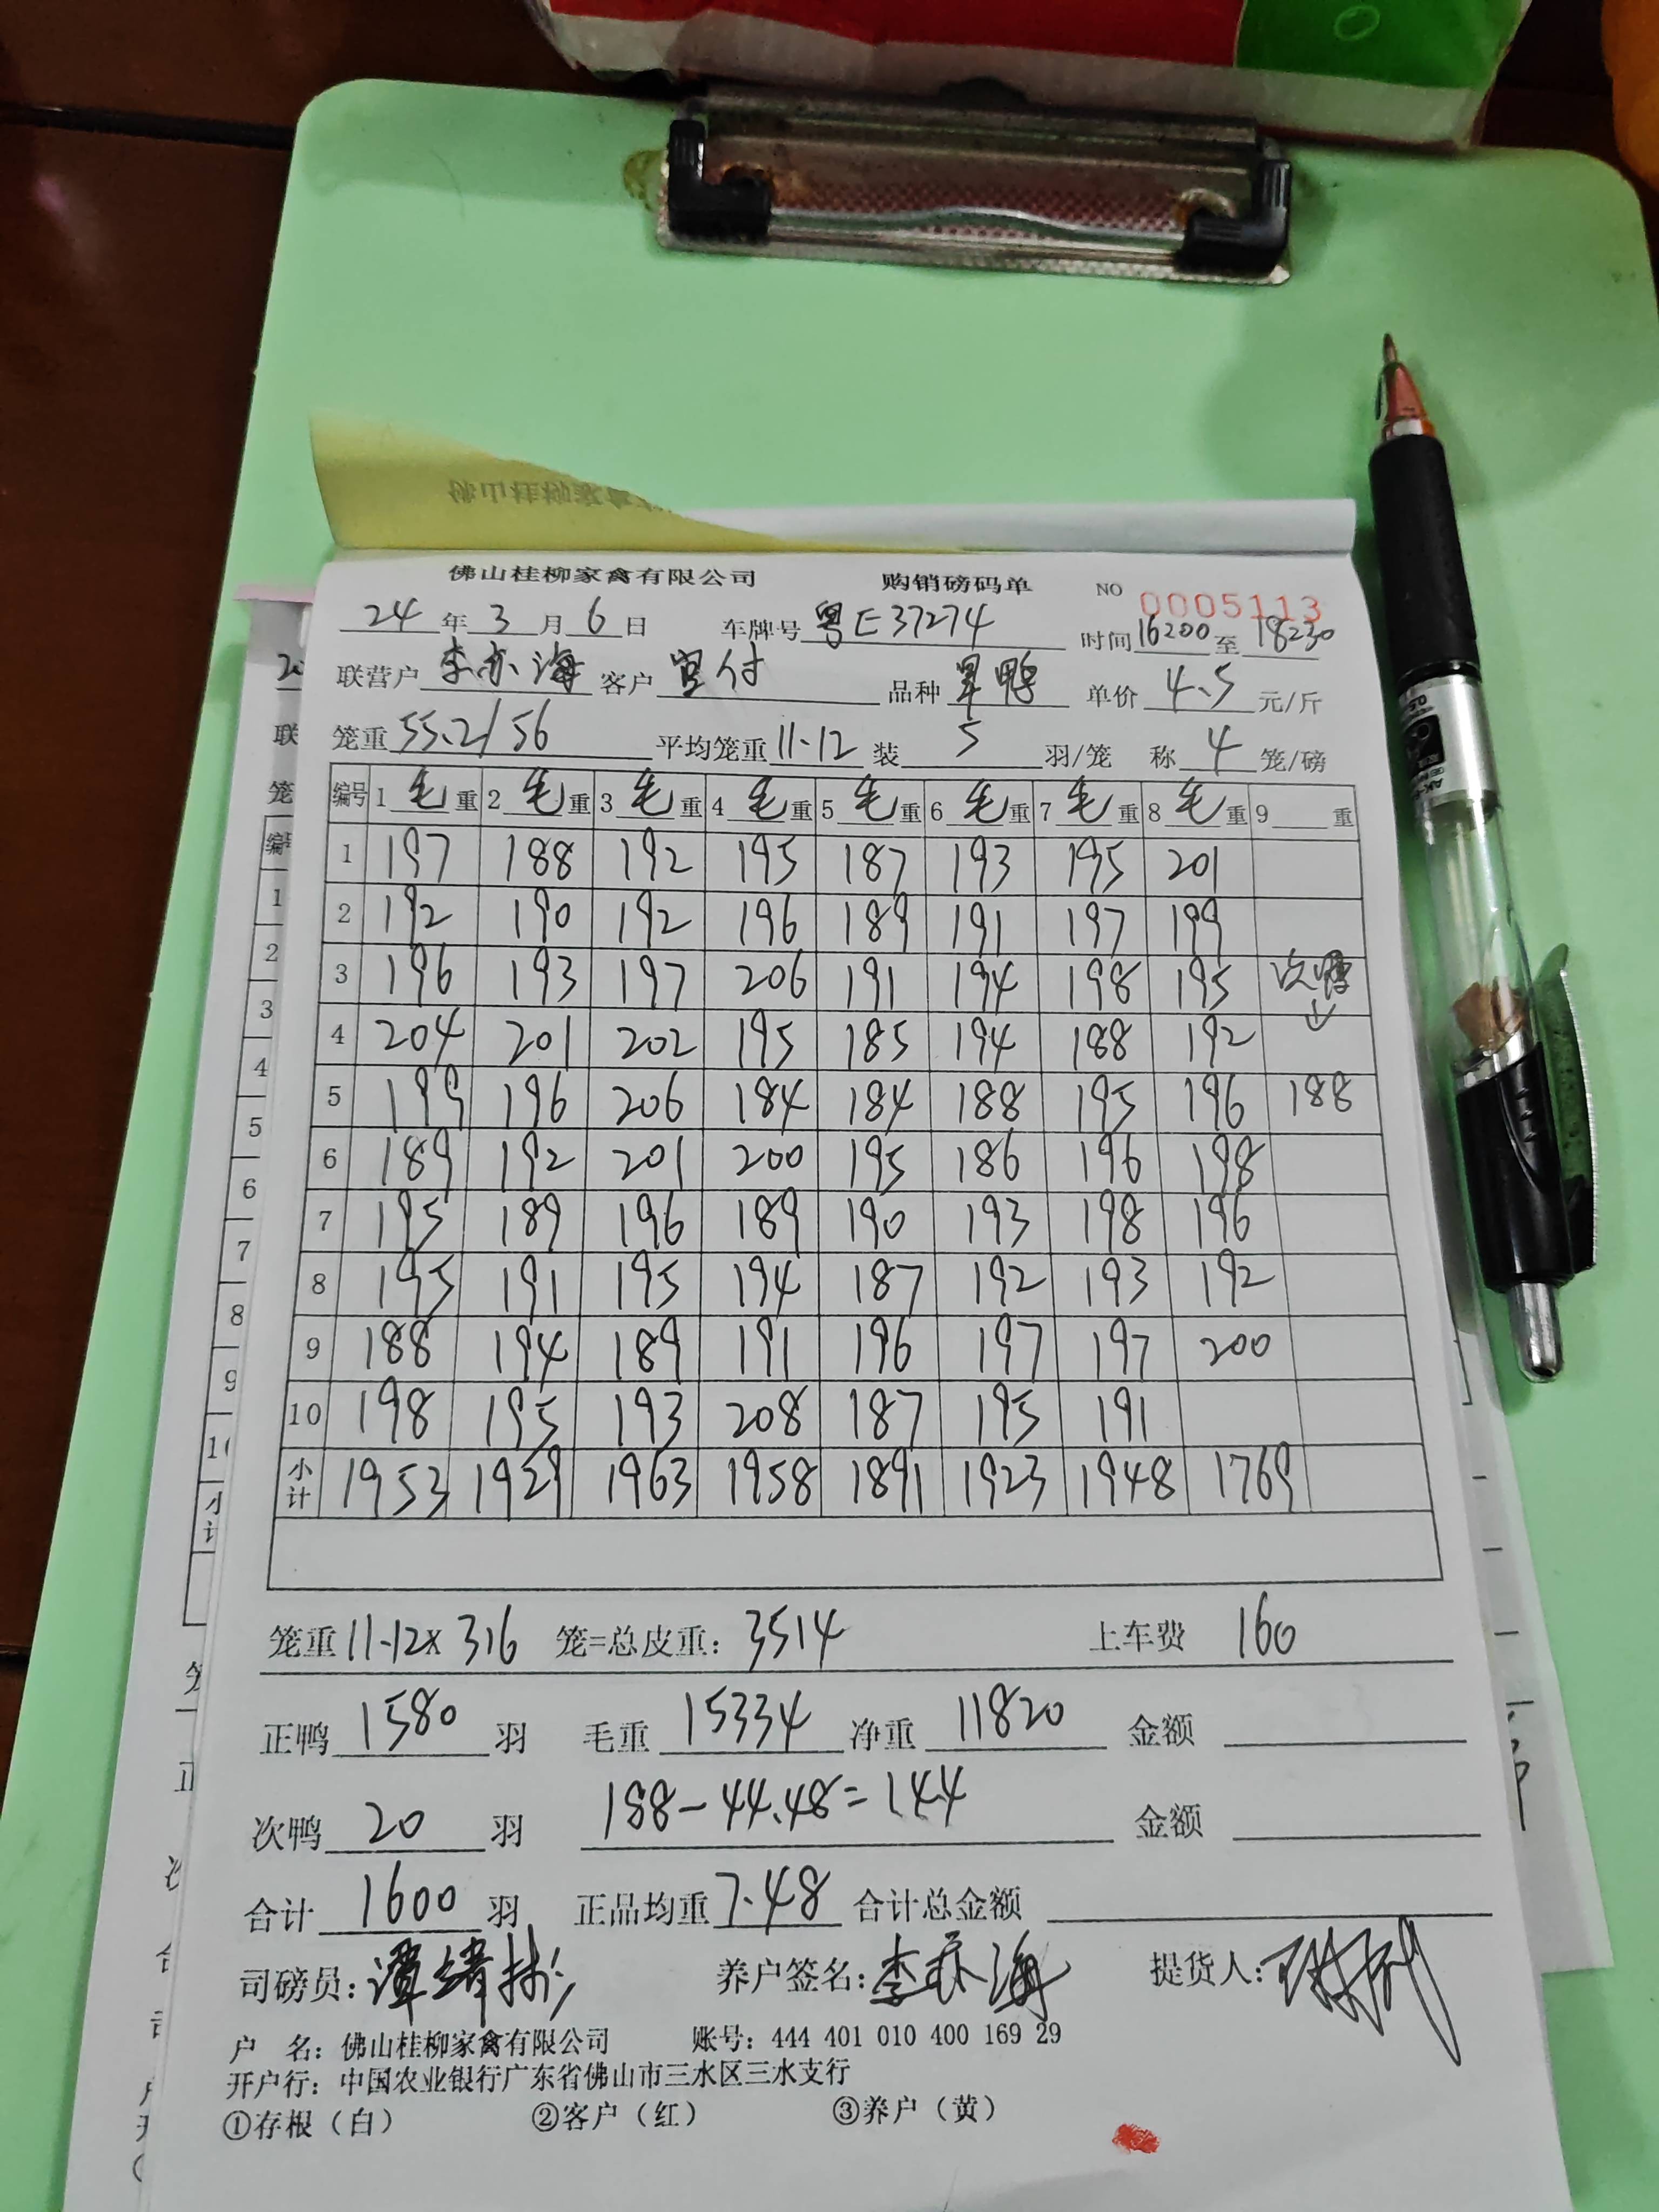 佛山桂柳家禽有限公司 购销磅码单 NO 0005113
24年3月6日 车牌号 粤E37274 时间 16200 至 18230
联营户 李亦海 客户 宝付 品种 旱鸭 单价 4.5 元/斤
笼重 55.2/56 平均笼重 11.12 装 5 羽/笼 称 4 笼/磅
编号 1毛重 2毛重 3毛重 4毛重 5毛重 6毛重 7毛重 8毛重 9 重
1 197 188 192 195 187 193 195 201
2 192 190 192 196 189 191 197 199
3 196 193 197 206 191 194 198 195 次鸭↓
4 204 201 202 195 185 194 188 192
5 199 196 206 184 184 188 195 196 188
6 189 192 201 200 195 186 196 198
7 195 189 196 189 190 193 198 196
8 195 191 195 194 187 192 193 192
9 188 194 189 191 196 197 197 200
10 198 195 193 208 187 195 191
小计 1953 1929 1963 1958 1891 1923 1948 1769
笼重 11.12x 316 笼=总皮重: 3514 上车费 160
正鸭 1580 羽 毛重 15334 净重 11820 金额
次鸭 20 羽 188-44.48=144 金额
合计 1600 羽 正品均重 7.48 合计总金额
司磅员: 养户签名: 李亦海 提货人:
户 名: 佛山桂柳家禽有限公司 账号: 444 401 010 400 169 29
开户行: 中国农业银行广东省佛山市三水区三水支行
①存根(白) ②客户(红) ③养户(黄)